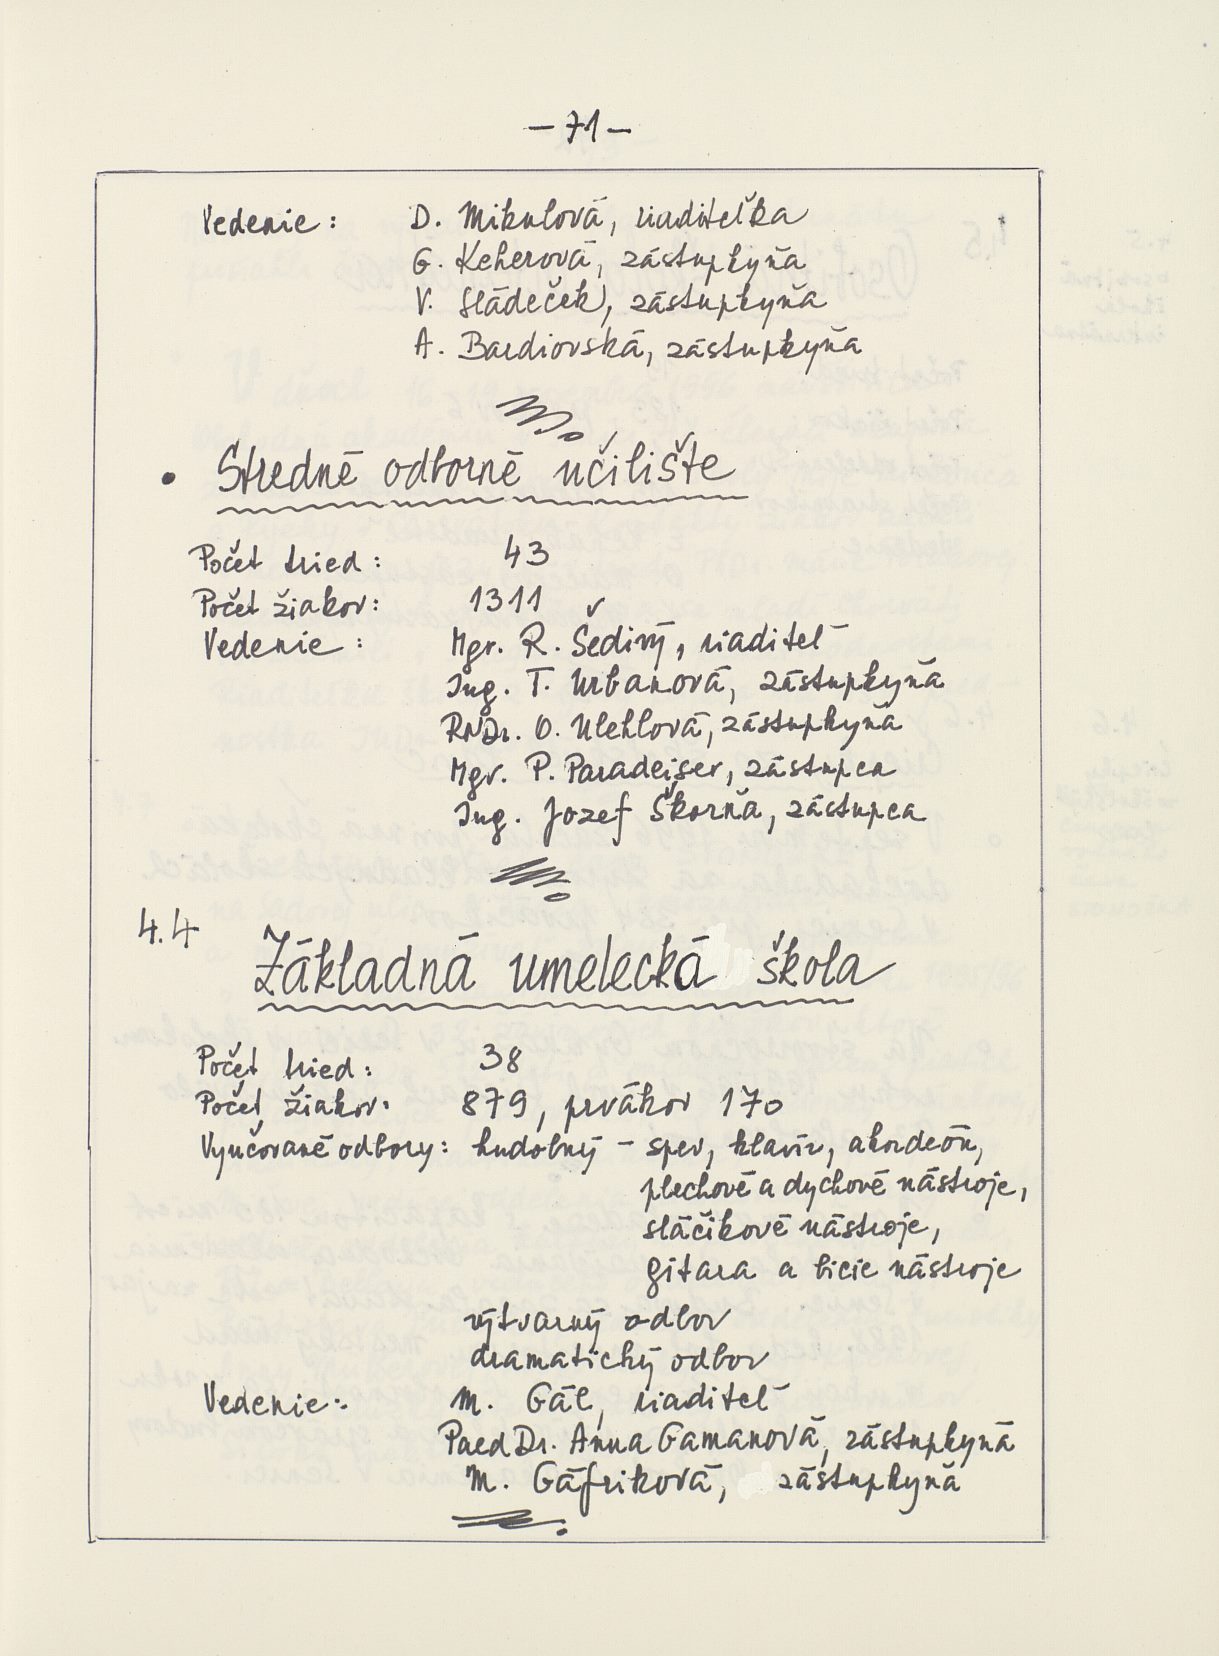 – 71 –
Vedenie: D. Mikulová, riaditeľka
G. Keherová, zástupkyňa
V. Sládeček, zástupkyňa
A. Bardiovská, zástupkyňa
• Stredné odborné učilište
Počet tried: 43
Počet žiakov: 1311
Vedenie: Mgr. R. Šedivý, riaditeľ
Ing. T. Urbanová, zástupkyňa
RNDr. O. Ulehlová, zástupkyňa
Mgr. P. Paradeiser, zástupca
Ing. Jozef Škorňa, zástupca
4.4 Základná umelecká škola
Počet tried: 38
Počet žiakov: 879, prvákov 170
Vyučované odbory: hudobný – spev, klavír, akordeón,
plechové a dychové nástroje,
sláčikové nástroje,
gitara a bicie nástroje
výtvarný odbor
dramatický odbor
Vedenie: M. Gál, riaditeľ
PaedDr. Anna Gamanová, zástupkyňa
M. Gáfriková, zástupkyňa